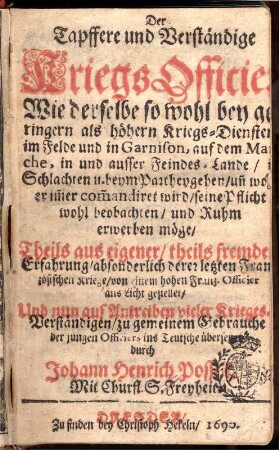 Der
Tapffere und Verständige
Kriegs-Officie
Wie derselbe so wohl bey ge
ringern als höhern Kriegs-Dienste
im Felde und in Garnison, auf dem Ma
che, in und ausser Feindes-Lande/
Schlachten u. beym Partheygehen/ uñ wo
er iṁer com̃andiret wird/ seine Pflicht
wohl beobachten/ und Ruhm
erwerben möge/
Theils aus eigener/ theils fremde
Erfahrung/ absonderlich derer letzten Fran
zösischen Kriege/ von einem hohen Frantz. Officier
ans Licht gestellet/
Und nun auf Antreiben vieler Krieges-
Verständigen/ zu gemeinem Gebrauche
der jungen Officiers ins Teutsche
durch
Johann Henrich
Mit Churfl. S. Freyheit
DRESDEN/
Zu finden bey Christoph Hekeln/ 1690.